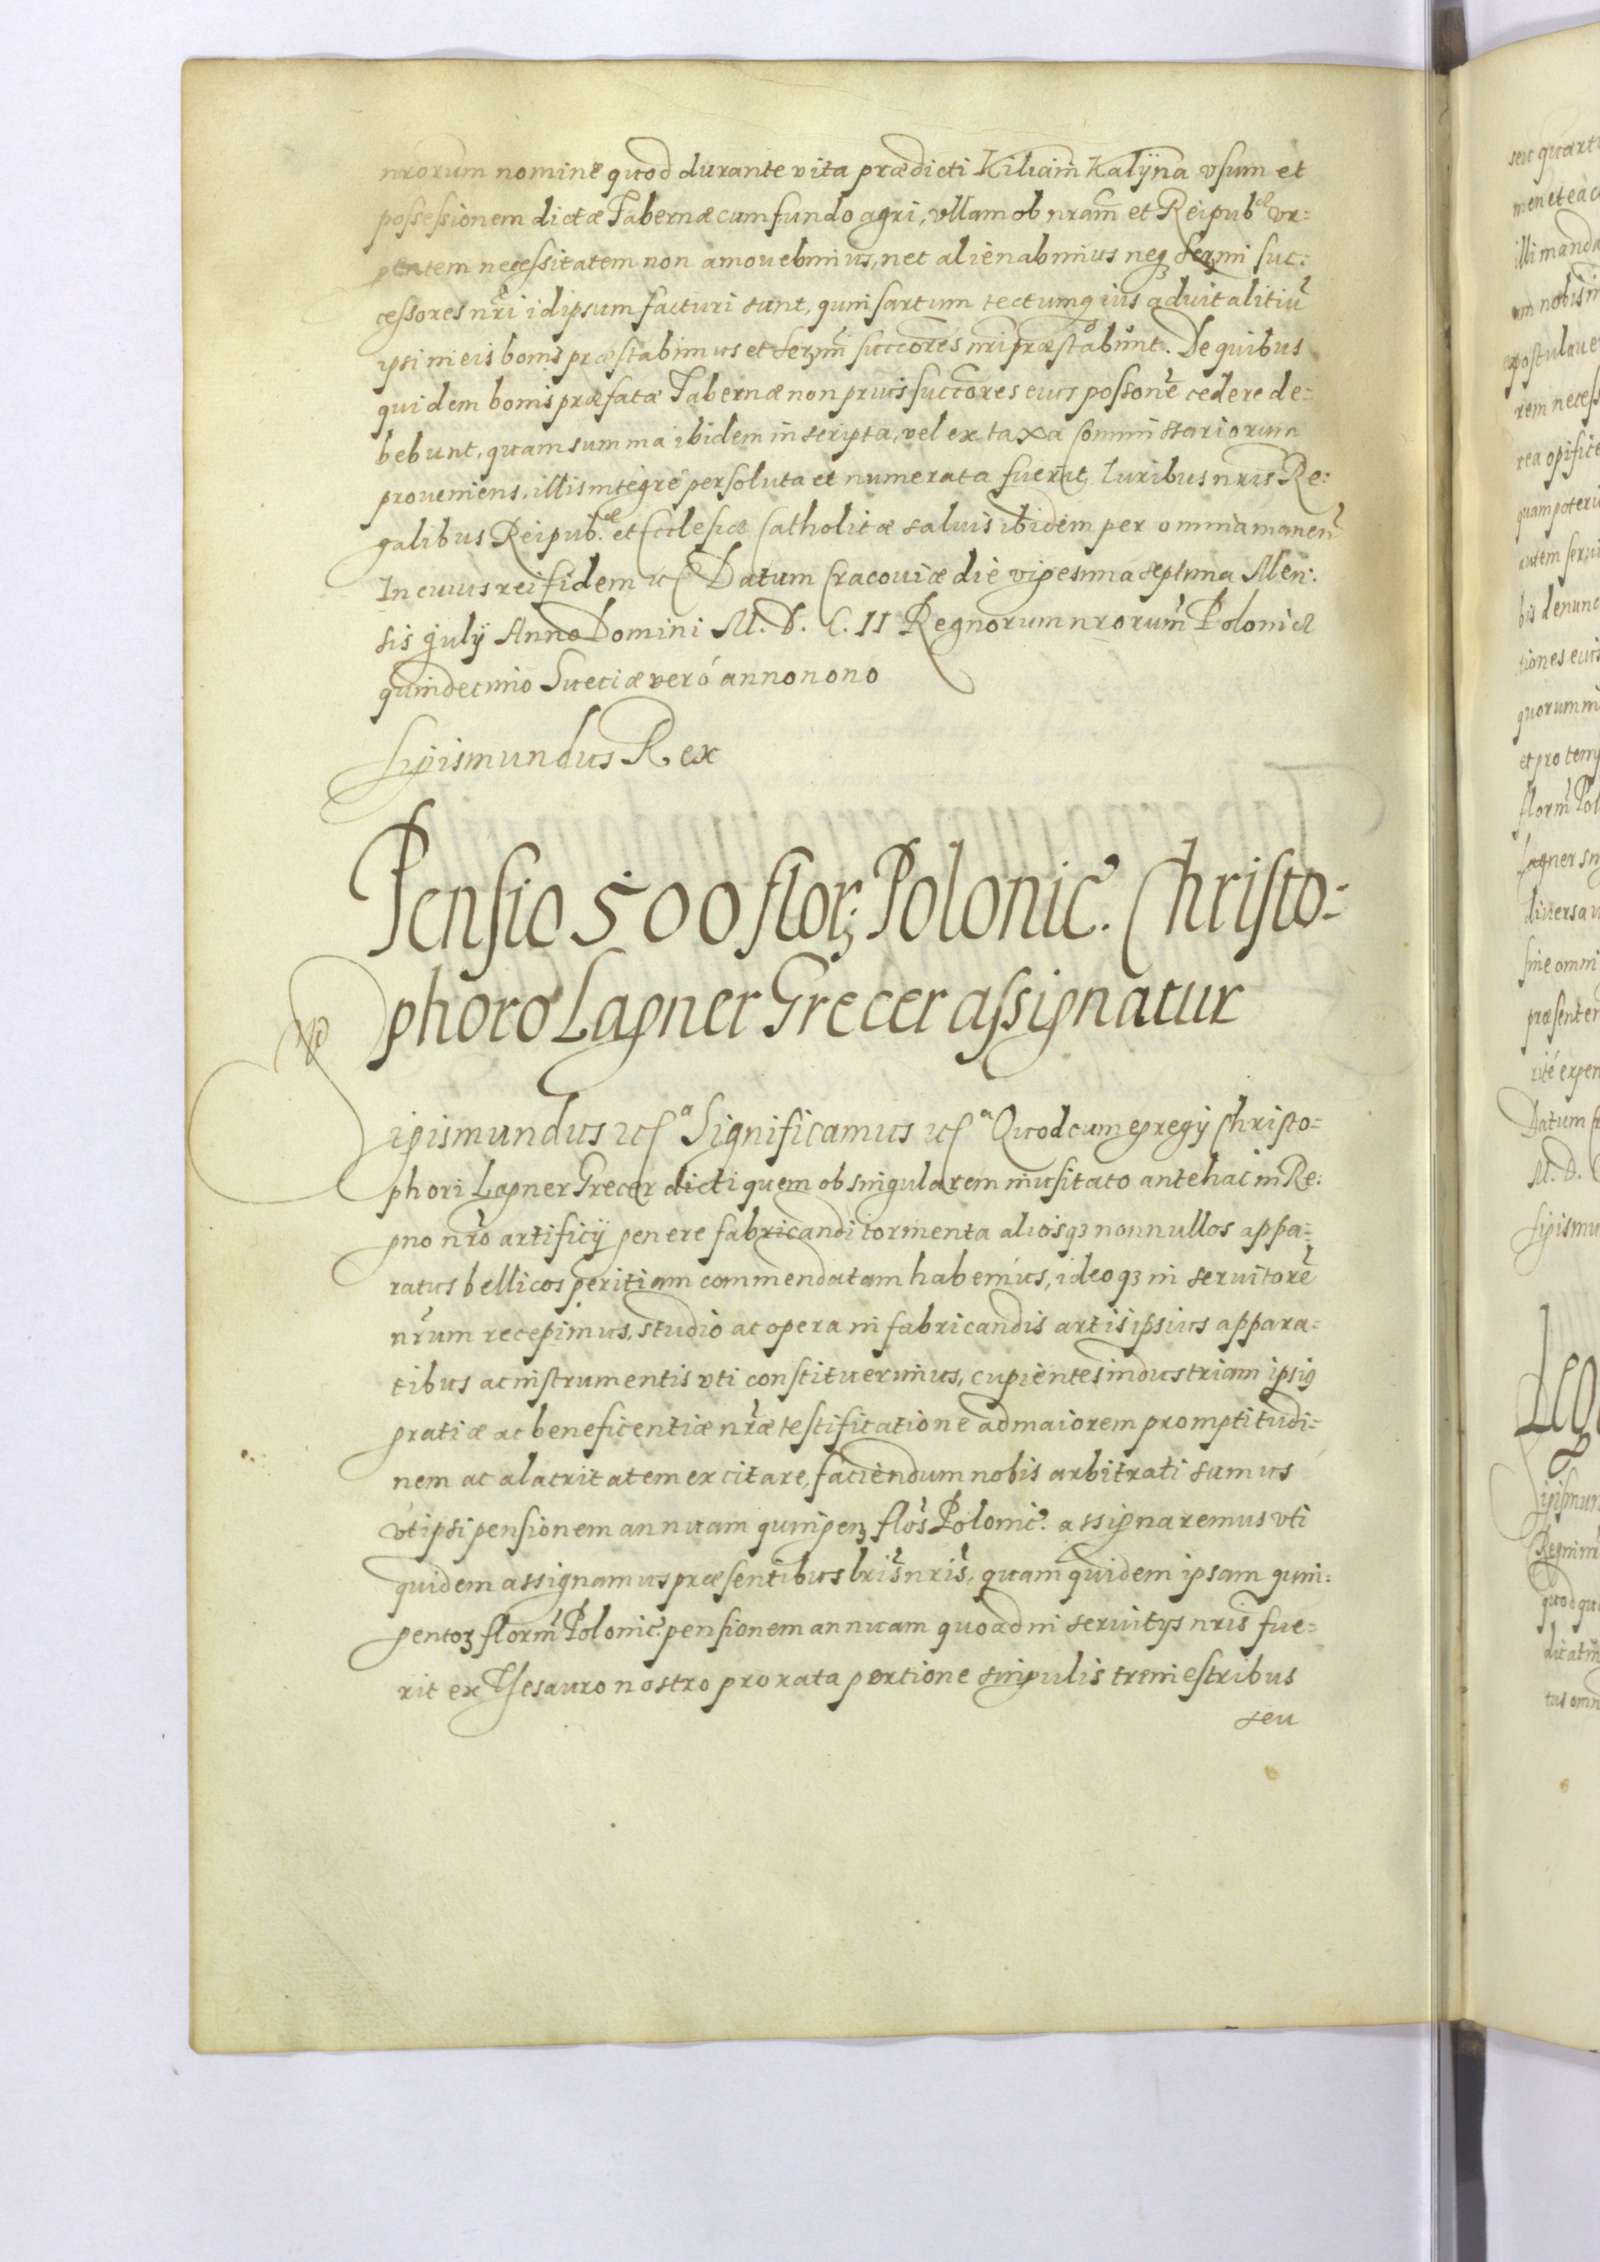 nrorum nomine quod durante vita prædicti Kiliani Kalÿna vsum et
possessionem dictæ Tabernæ cum fundo agri, vllam ob nram et Reipub. vr-
gentem necessitatem non amouebimus, nec alienabimus neq3 Sermi suc-
cessores nri id ipsum facturi sunt, quin sartum tectumq3 ius aduitalitiu
ipsi in eis bonis præstabimus et Sermi succores nri præstabunt. De quibus
quidem bonis præfatæ Tabernæ non prius succores eius possone cedere de-
bebunt, quam summa ibidem inscripta, vel ex taxa Commissariorum
proueniens, illis integrè persoluta et numerata fuerit, Iuribus nris Re-
galibus Reipub.æ et Ecclesiæ Catholicæ saluis ibidem per omnia manen
In cuius rei fidem etc Datum Cracouiæ die vigesima septima Men-
sis Julÿ Anno Domini M. D. C. II Regnorum nrorum Poloniæ
quindecimo Sueciæ verò anno nono
Sigismundus Rex
Pensio 500 flor3 Polonic. Christo-
phoro Lagner Grecer assignatur
Sigismundus etc Significamus etc Quod cum egregÿ Christo-
phori Lagner Grecer dicti quem ob singularem inusitato antehac in Re-
gno nro artificÿ genere fabricandi tormenta aliosq3 nonnullos appa-
ratus bellicos peritiam commendatam habemus, ideoq3 in seruitore
nrum recepimus, studio ac opera in fabricandis artis ipsius appara-
tibus ac instrumentis vti constituerimus, cupientes industriam ipsius
gratiæ ac beneficentiæ nræ testificatione ad maiorem promptitudi-
nem ac alacritatem excitare, faciendum nobis arbitrati sumus
vt ipsi pensionem annuam quingen3 flos Polonic. assignaremus vti
quidem assignamus præsentibus lris nris, quam quidem ipsam quin-
gento3 florm Polonic. pensionem annuam quoad in seruitÿs nris fue-
rit ex Thesauro nostro pro rata portione singulis trimestribus
seu